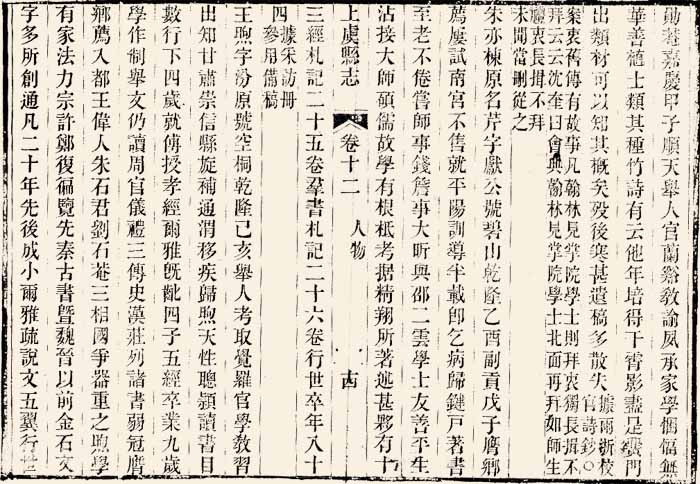 勛菴嘉慶甲子順天舉人官蘭谿敎諭夙承家學悃愊無
華善誨士類其種竹詩有云他年培得干霄影盡足
門
出類材可以知其槪矣歿後寒甚遺稿多散失據兩浙校官詩鈔○
案衷舊傳有故事凡翰林見掌院學士則拜衷獨長揖不
拜云云沈奎曰會典翰林見掌院學士北面再拜如師生
禮衷長揖不拜
未聞當刪從之
朱亦棟原名芹字獻公號碧山乾隆乙酉副貢戊子膺鄉
薦屢試南宮不售就平陽訓導半載卽乞病歸鍵戸著書
至老不倦嘗師事錢詹事大昕與邵二雲學士友善平生
沾接大師碩儒故學有根柢考据精翔所著述甚夥有十
上虞縣志 卷十二 人物 十四
三經札記二十五卷羣書札記二十六卷行世卒年八十
四據采訪冊
參用備稿
王煦字汾原號空桐乾隆己亥舉人考取覺羅官學敎習
出知甘肅崇信縣旋補通渭移疾歸煦天性聰潁讀書目
數行下四歲就傅授孝經爾雅旣齔四子五經卒業九歲
學作制舉文仍讀周官儀禮三傳史漢莊列諸書弱冠膺
鄉薦入都王偉人朱石君劉石菴三相國爭器重之煦學
有家法力宗許鄭復徧覽先秦古書曁魏晉以前金石文
字多所創通凡二十年先後成小爾雅疏說文五翼行世